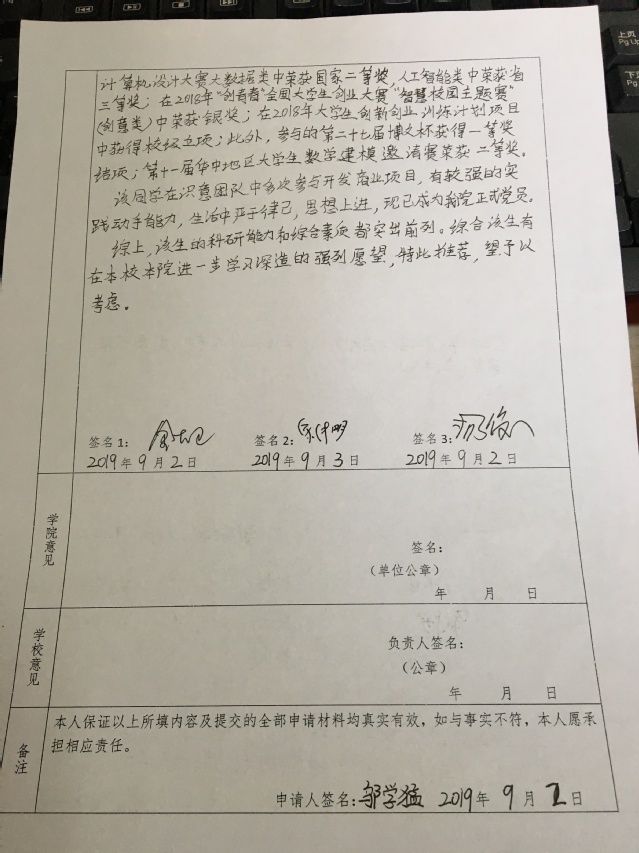 计算机设计大赛大数据类中荣获国家二等奖，人工智能类中荣获省
三等奖；在2018年“创青春”全国大学生创业大赛“智慧校园主题赛”
（创意类）中荣获银奖；在2018年大学生创新创业训练计划项目
中获得校级立项；此外，参与的第二十七届博文杯获得一等奖
结项；第十一届华中地区大学生数学建模邀请赛荣获二等奖。
该同学在识意团队中多次参与开发商业项目，有较强的实
践动手能力，生活中严于律己，思想上进，现已成为我党正式党员。
综上，该生的科研能力和综合素质都突出前列。综合该生有
在本校本院进一步学习深造的强烈愿望，特此推荐，望予以
考虑。
签名1： 签名2： 签名3：
2019年9月2日 2019年9月3日 2019年9月2日
学院意见
签名：
（单位公章）
年 月 日
学校意见
负责人签名：
（公章）
年 月 日
备注
本人保证以上所填内容及提交的全部申请材料均真实有效，如与事实不符，本人愿承
担相应责任。
申请人签名：邹学猛 2019年9月2日
上页
PgUp
下页